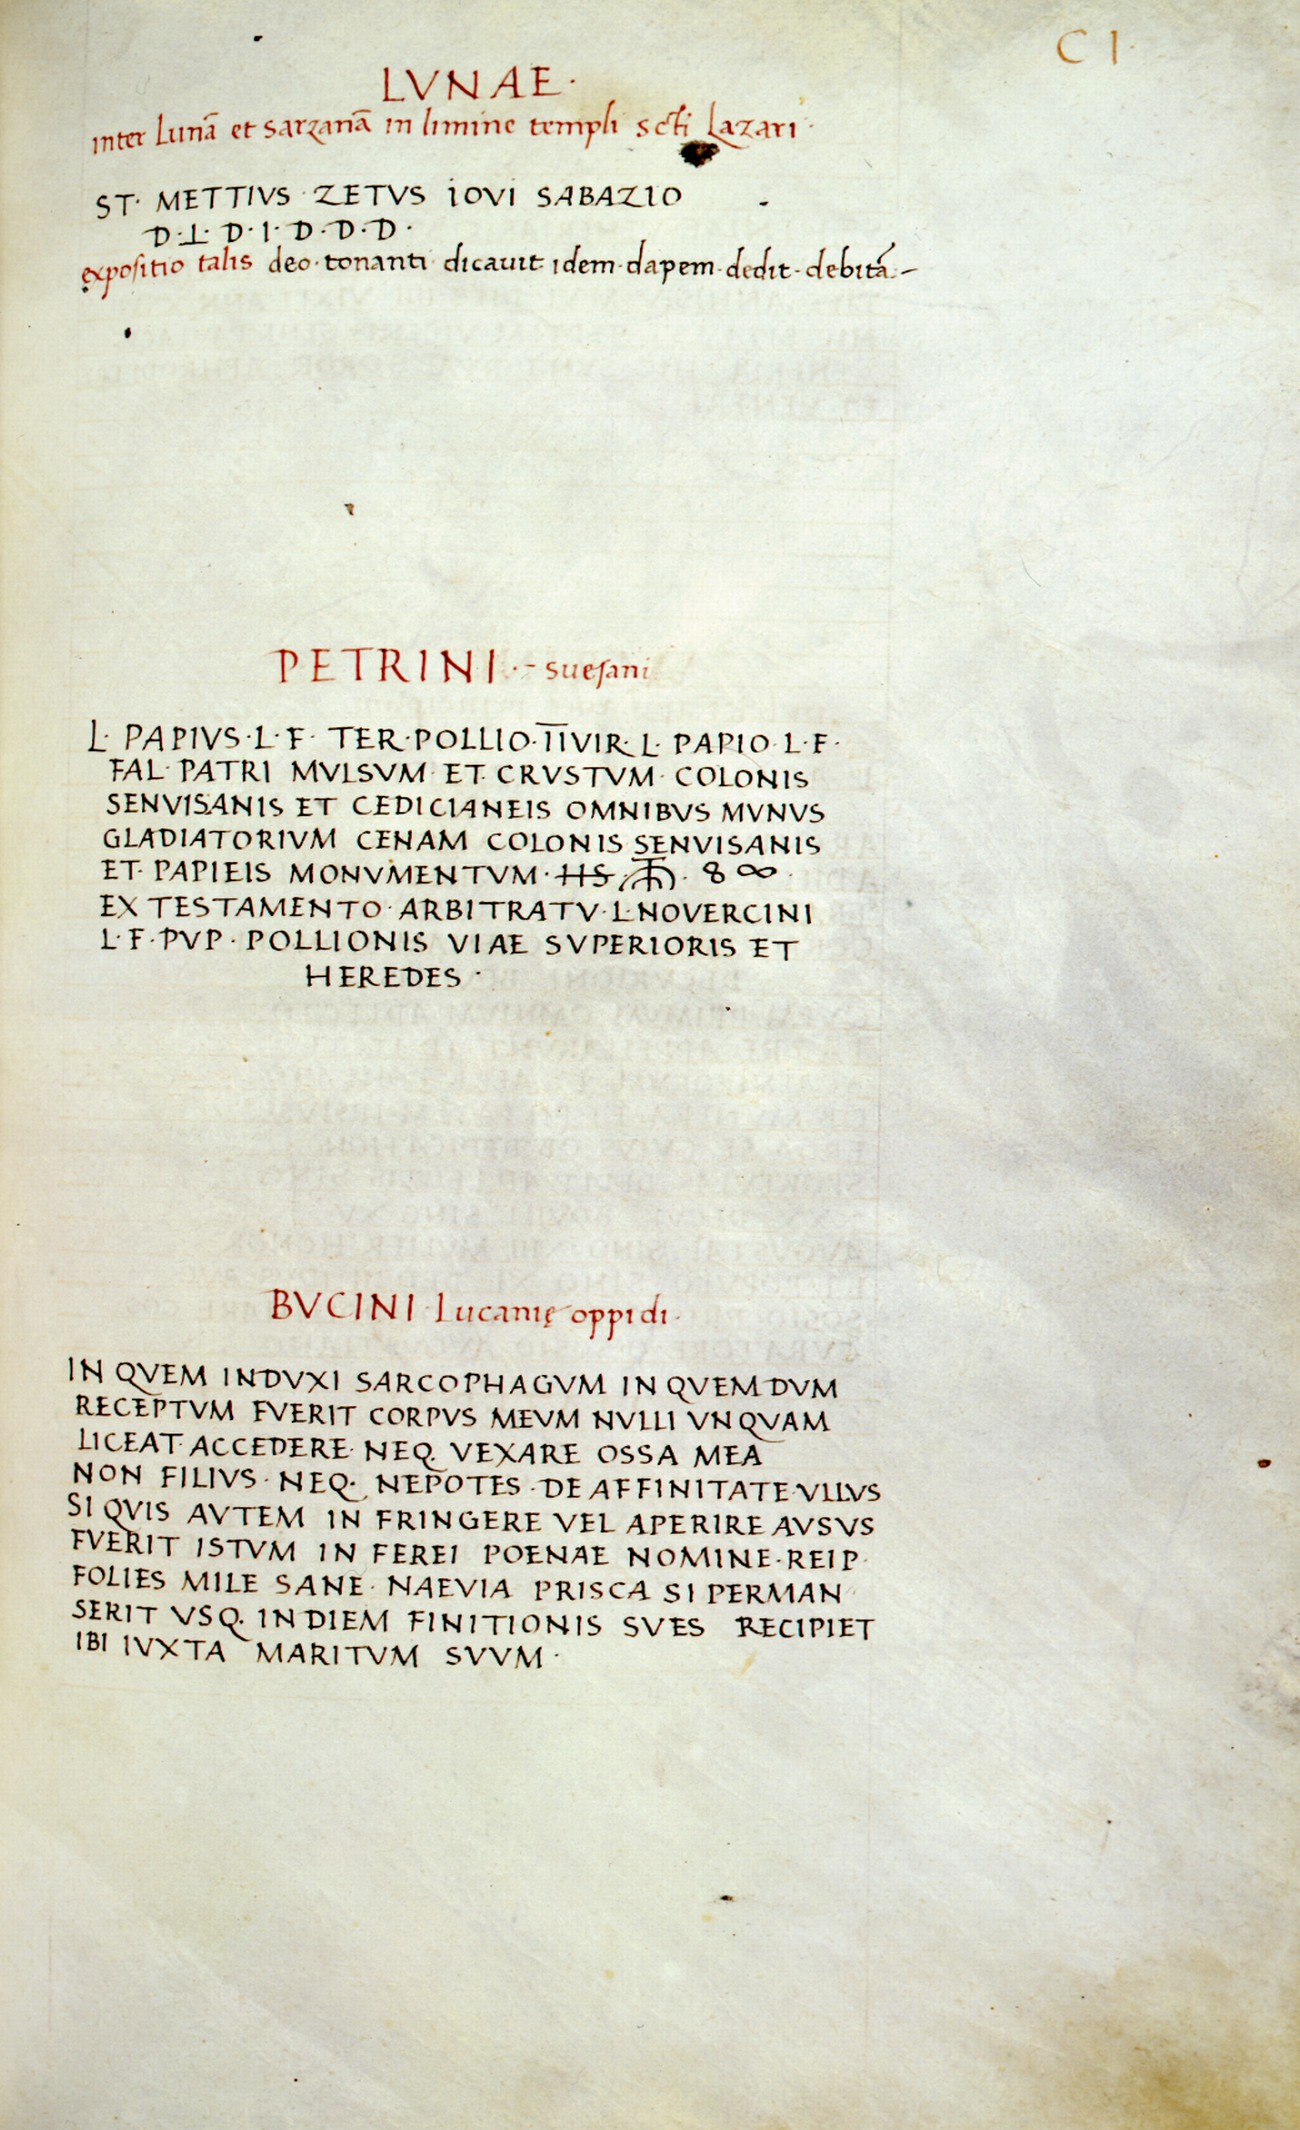 C I ·
LVNAE ·
inter Lunā et sarzanā in limine templi sc̄ti Lazari ·
ST· METTIVS · ZETVS IOVI SABAZIO
D·⊥·D·I·D·D·D·
expositio talis deo·tonanti dicauit·idem·dapem·dedit·debitā·-
PETRINI ·- suesani
L· PAPIVS·L·F· TER·POLLIO·I̅I̅VIR·L· PAPIO·L·F·
FAL·PATRI MVLSVM· ET· CRVSTVM· COLONIS
SENVISANIS ET CEDICIANEIS OMNIBVS MVNVS
GLADIATORIVM CENAM COLONIS SENVISANIS
ET· PAPIEIS MONVMENTVM· HS · 8 ∞ ·
EX TESTAMENTO· ARBITRATV·L·NOVERCINI
L·F·PVP·POLLIONIS VIAE SVPERIORIS ET
HEREDES ·
BVCINI Lucanię oppidi·
IN QVEM INDVXI SARCOPHAGVM IN QVEM DVM
RECEPTVM FVERIT CORPVS MEVM NVLLI VNQVAM
LICEAT·ACCEDERE· NEQ. VEXARE OSSA MEA
NON FILIVS· NEQ· NEPOTES·DE AFFINITATE·VLLVS
SI QVIS AVTEM IN FRINGERE VEL APERIRE AVSVS
FVERIT ISTVM IN FEREI POENAE NOMINE·REI P·
FOLIES MILE SANE· NAEVIA PRISCA SI PERMAN
SERIT VSQ. IN DIEM FINITIONIS SVES RECIPIET
IBI IVXTA MARITVM SVVM ·